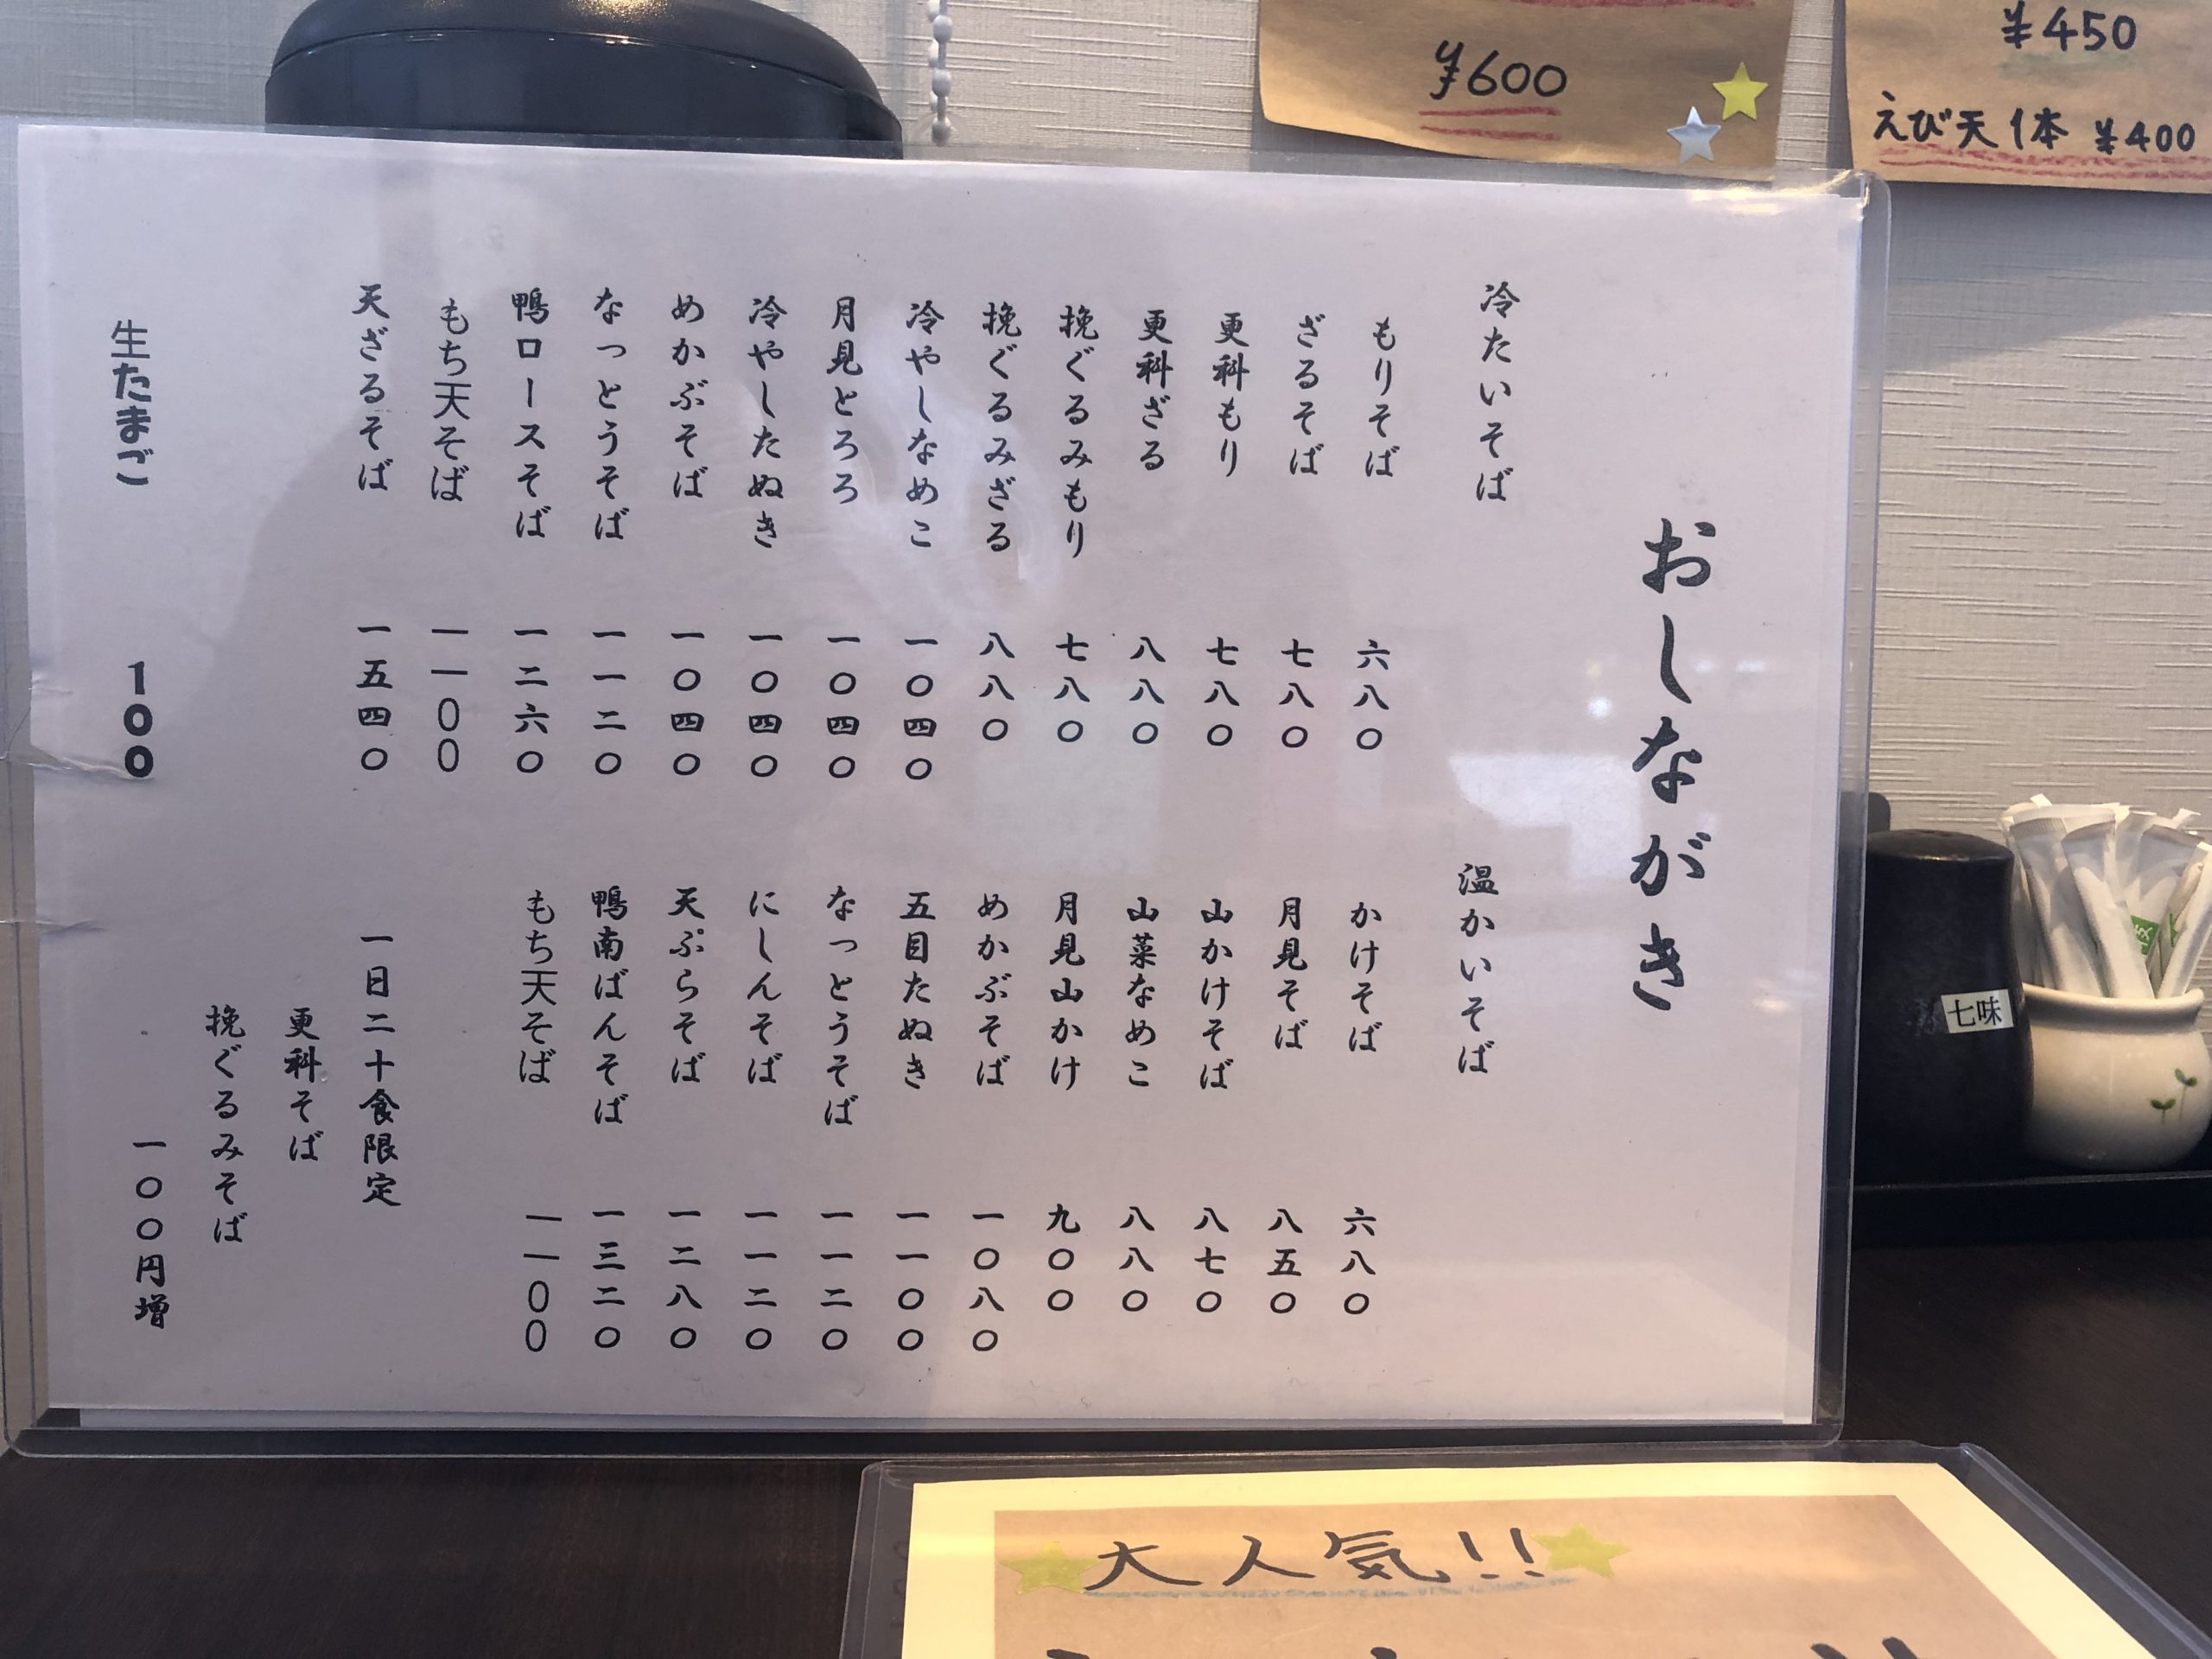 ¥600
¥450
えび天1本 ¥400
おしながき
冷たいそば
もりそば 六八〇
ざるそば 七八〇
更科もり 七八〇
更科ざる 八八〇
挽ぐるみもり 七八〇
挽ぐるみざる 八八〇
冷やしなめこ 一〇四〇
月見とろろ 一〇四〇
冷やしたぬき 一〇四〇
めかぶそば 一〇四〇
なっとうそば 一一二〇
鴨ロースそば 一二六〇
もち天そば 一一〇〇
天ざるそば 一五四〇
生たまご 100
温かいそば
かけそば 六八〇
月見そば 八五〇
山かけそば 八七〇
山菜なめこ 八八〇
月見山かけ 九〇〇
めかぶそば 一〇八〇
五目たぬき 一一〇〇
なっとうそば 一一二〇
にしんそば 一一二〇
天ぷらそば 一二八〇
鴨南ばんそば 一三二〇
もち天そば 一一〇〇
一日二十食限定
更科そば
挽ぐるみそば
一〇〇円増
七味
大人気!!